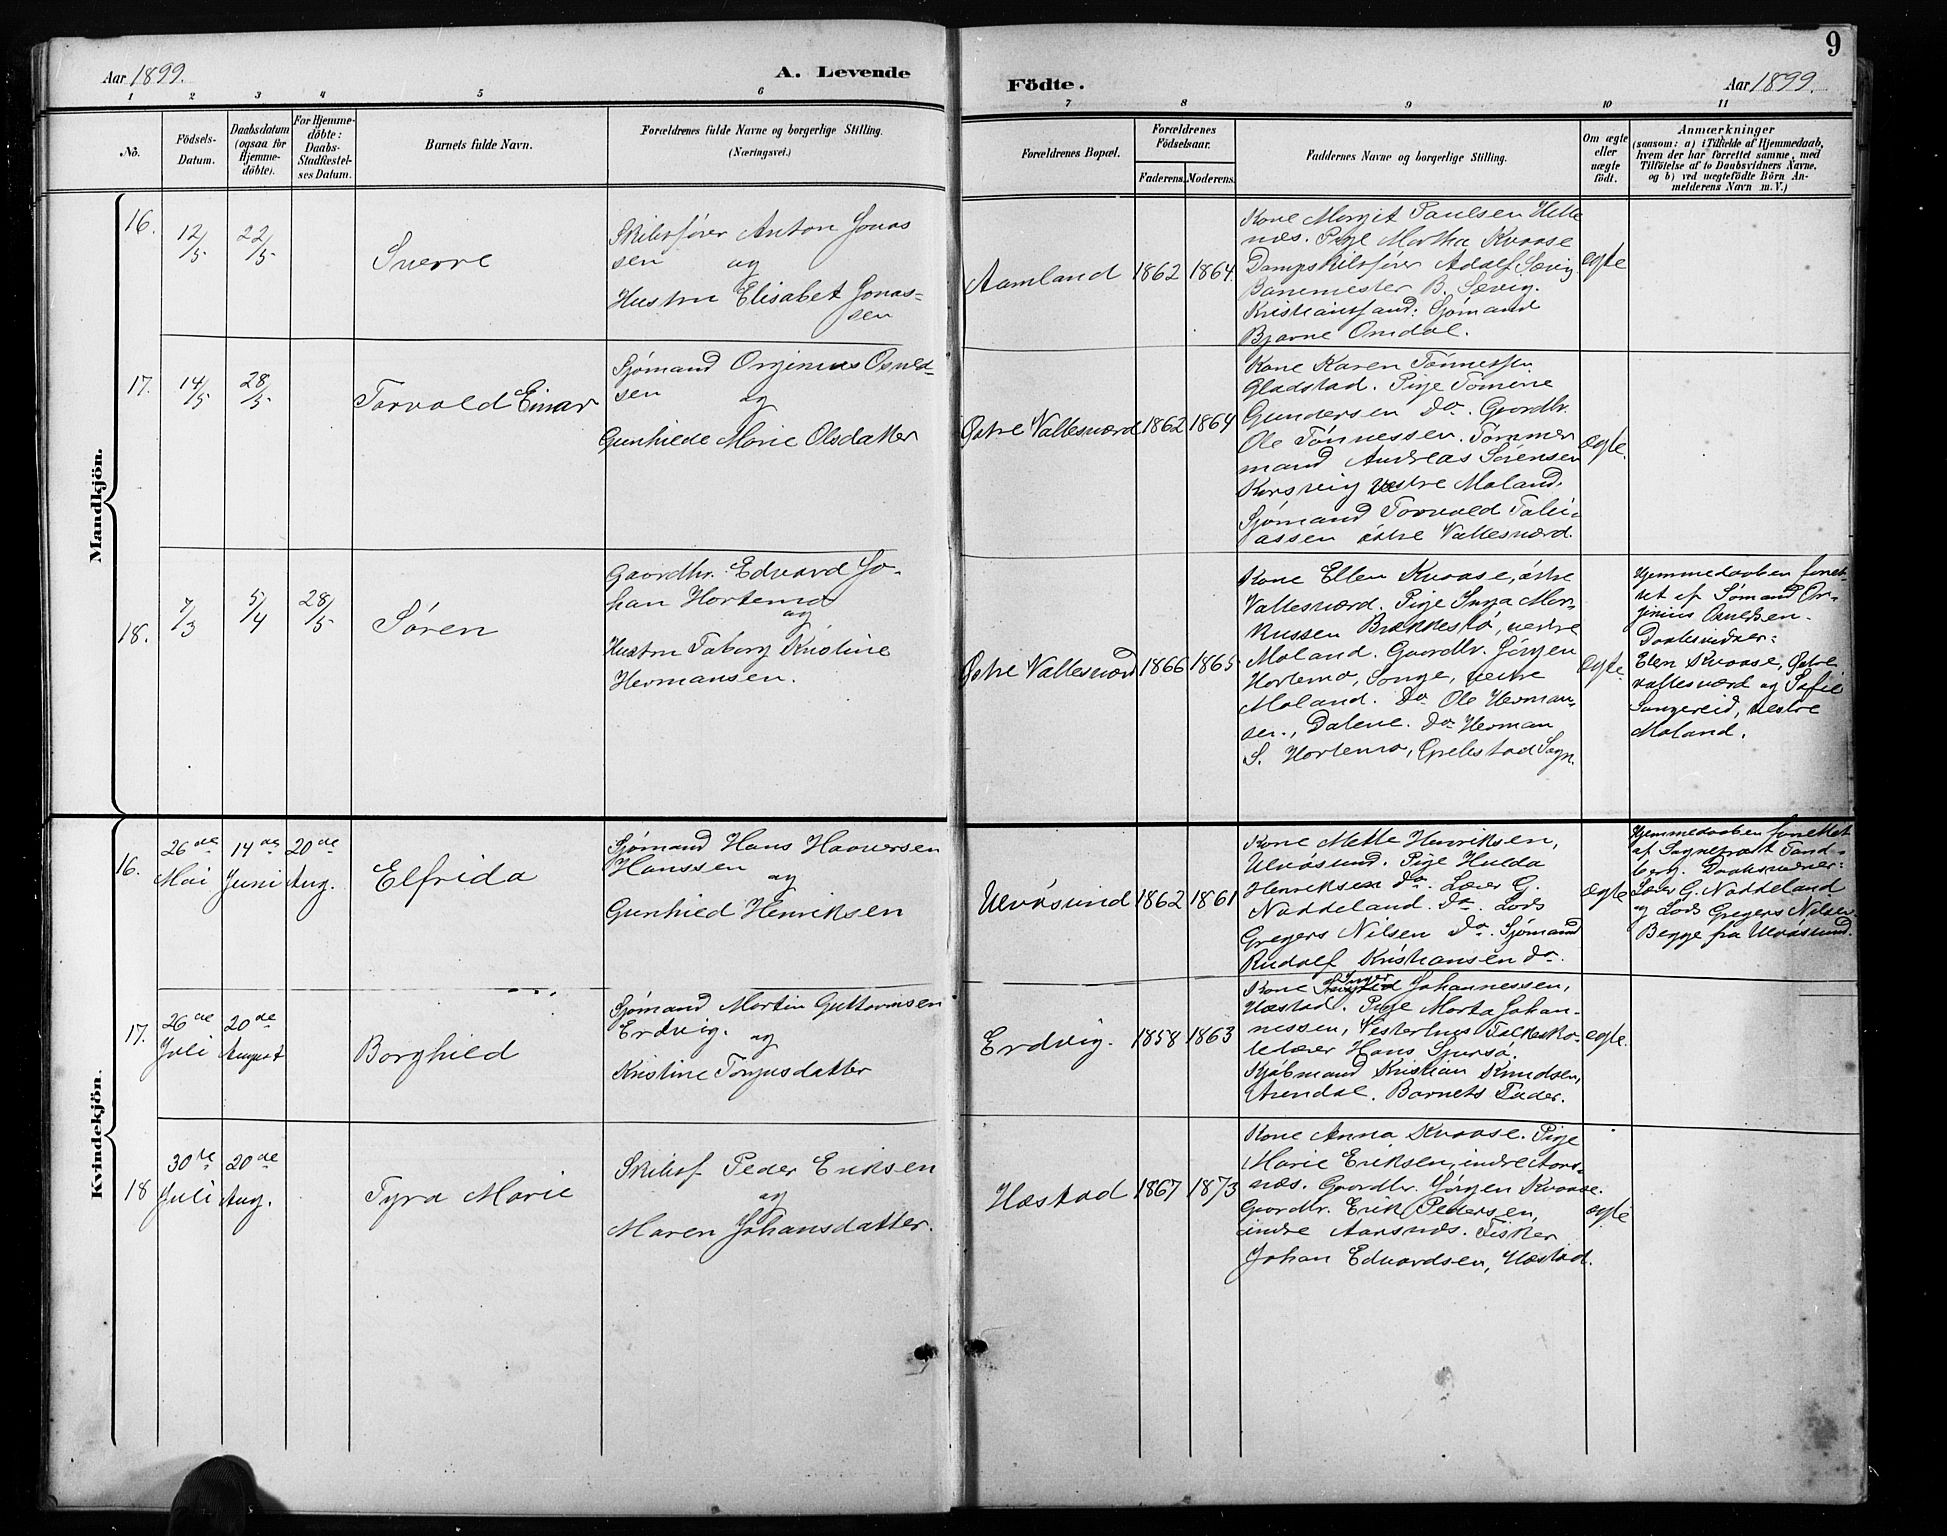 9
Aar 1899.
A. Levende
Födte.
Aar 1899.
1 2 3 4 5 6 7 8 9 10 11
No.
Födsels-
Datum.
Daabsdatum
(ogsaa för
Hjemme-
döbte).
For Hjemme-
döbte:
Daabs-
Stadfæstel-
ses Datum.
Barnets fulde Navn.
Forældrenes fulde Navne og borgerlige Stilling.
(Næringsvei.)
Forældrenes Bopæl.
Forældrenes
Födselsaar.
Faderens. Moderens.
Faddernes Navne og borgerlige Stilling.
Om ægte
eller
uægte
födt.
Anmærkninger
(saasom: a) i Tilfælde af Hjemmedaab,
hvem der har forrettet samme, med
Tilföielse af to Daabsvidners Navne,
og b) ved uægtefödte Börn An-
melderens Navn m.V.)
Mandkjön.
16.
12/5
22/5
Sverre
Skibsfører Anton Jonas
sen og
Hustru Elisabet Jonas-
sen
Aamland
1862
1864.
Kone Margit Paulsen Helle
næs. Pige Martha Kvaase
Dampskibsfører Adolf Sævig
Banemester B. Sævig.
Kristianssand. Sjømand
Bjarne Omdal.
ægte
17.
14/5
28/5
Torvald Einar
Sjømand Orginius Osuld-
sen og
Gunhilde Marie Olsdatter
Østre Vallesværd
1862
1864
Kone Karen Tønnessen
Gladstad. Pige Tomene
Gundersen Do. Gaardbr.
Ole Tønnessen. Tømmer
mand Andreas Sørensen
Korsvig vestre Moland.
Sjømand Torvald Tobi-
assen østre Vallesværd.
ægte.
18.
7/3
5/4
28/5
Søren
Gaardbr. Edvard Jo-
han Hortemo
og
Hustru Taborg Kristine
Hermansen.
Østre Vallesværd
1866
1865
Kone Ellen Kvaase, østre
Vallesværd. Pige Inga Mar-
kussen Brækkestø, vestre
Moland. Gaardbr. Jørgen
Hortemo, Songe, vestre
Moland. Do Ole Herman-
sen., Dalene. Do Herman
S. Hortemo, Grebstad Sogn.
ægte.
Hjemmedaaben forret-
tet af Sømand Or-
ginius Osuldsen.
Daabsvidner:
Elen Kvaase, Østre
vallesværd og Sofie
Sangereid, vestre
Moland.
Kvindekjön.
16.
26de
Mai
14de
Juni
20de
Aug.
Elfrida
Sjømand Hans Haaversen
Hanssen
og
Gunhild Henriksen
Ulvøsund
1862
1861
Kone Mette Henriksen,
Ulvøsund. Pige Hulda
Henriksen do. Lærer G.
Naddeland. Do. Lods
Gregers Nilsen Do. Sjømand
Rudolf Kristiansen do.
ægte
Hjemmedaaben forrettet
af Sogneprest Tand-
berg. Daabsvidner:
Lærer G. Naddeland
og Lods Gregers Nilsen
Begge fra Ulvøsund.
17.
26de
Juli
20de
August
Borghild
Sjømand Martin Guttormsen
Erdvig. og
Kristine Torjusdatter
Erdvig.
1858
1863
Kone Inger Johannessen,
Hæstad. Pige Marta Johan-
nessen, Vesterhus. Folkesko-
lelærer Hans Sjursø.
Kjøbmand Kristian Knudsen,
Arendal. Barnets Fader.
ægte.
18
30te
Juli
20de
Aug.
Tyra Marie
Skibsf Peder Eriksen
og
Maren Johansdatter.
Hæstad
1867
1873
Kone Anna Kvaase. Pige
Marie Eriksen, indre Aars-
næs. Gaardbr. Jørgen Kvaase.
Gaardbr. Erik Pedersen,
indre Aarsnæs. Fisker
Johan Edvardsen, Hæstad.
ægte